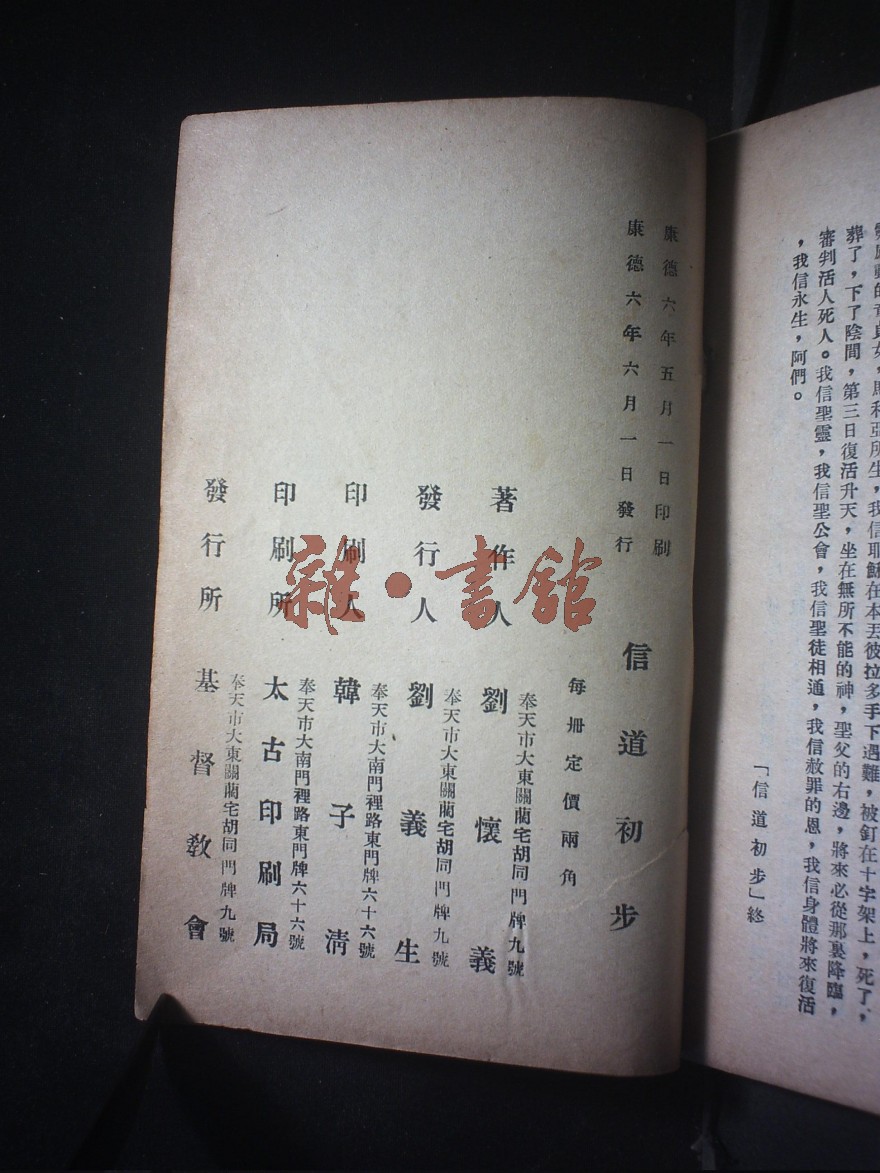 葬了，下了陰間，第三日復活升天，坐在無所不能的神，聖父的右邊，將來必從那裏降臨，
審判活人死人。我信聖靈，我信聖公會，我信聖徒相通，我信赦罪的恩，我信身體將來復活
，我信永生，阿們。
「信道初步」終
康德六年五月一日印刷
康德六年六月一日發行
信道初步
每册定價兩角
奉天市大東關藺宅胡同門牌九號
著作人 劉懷義
奉天市大東關藺宅胡同門牌九號
發行人 劉義生
奉天市大南門裡路東門牌六十六號
印刷人 韓子清
奉天市大南門裡路東門牌六十六號
印刷所 太古印刷局
奉天市大東關藺宅胡同門牌九號
發行所 基督敎會
雜·書館